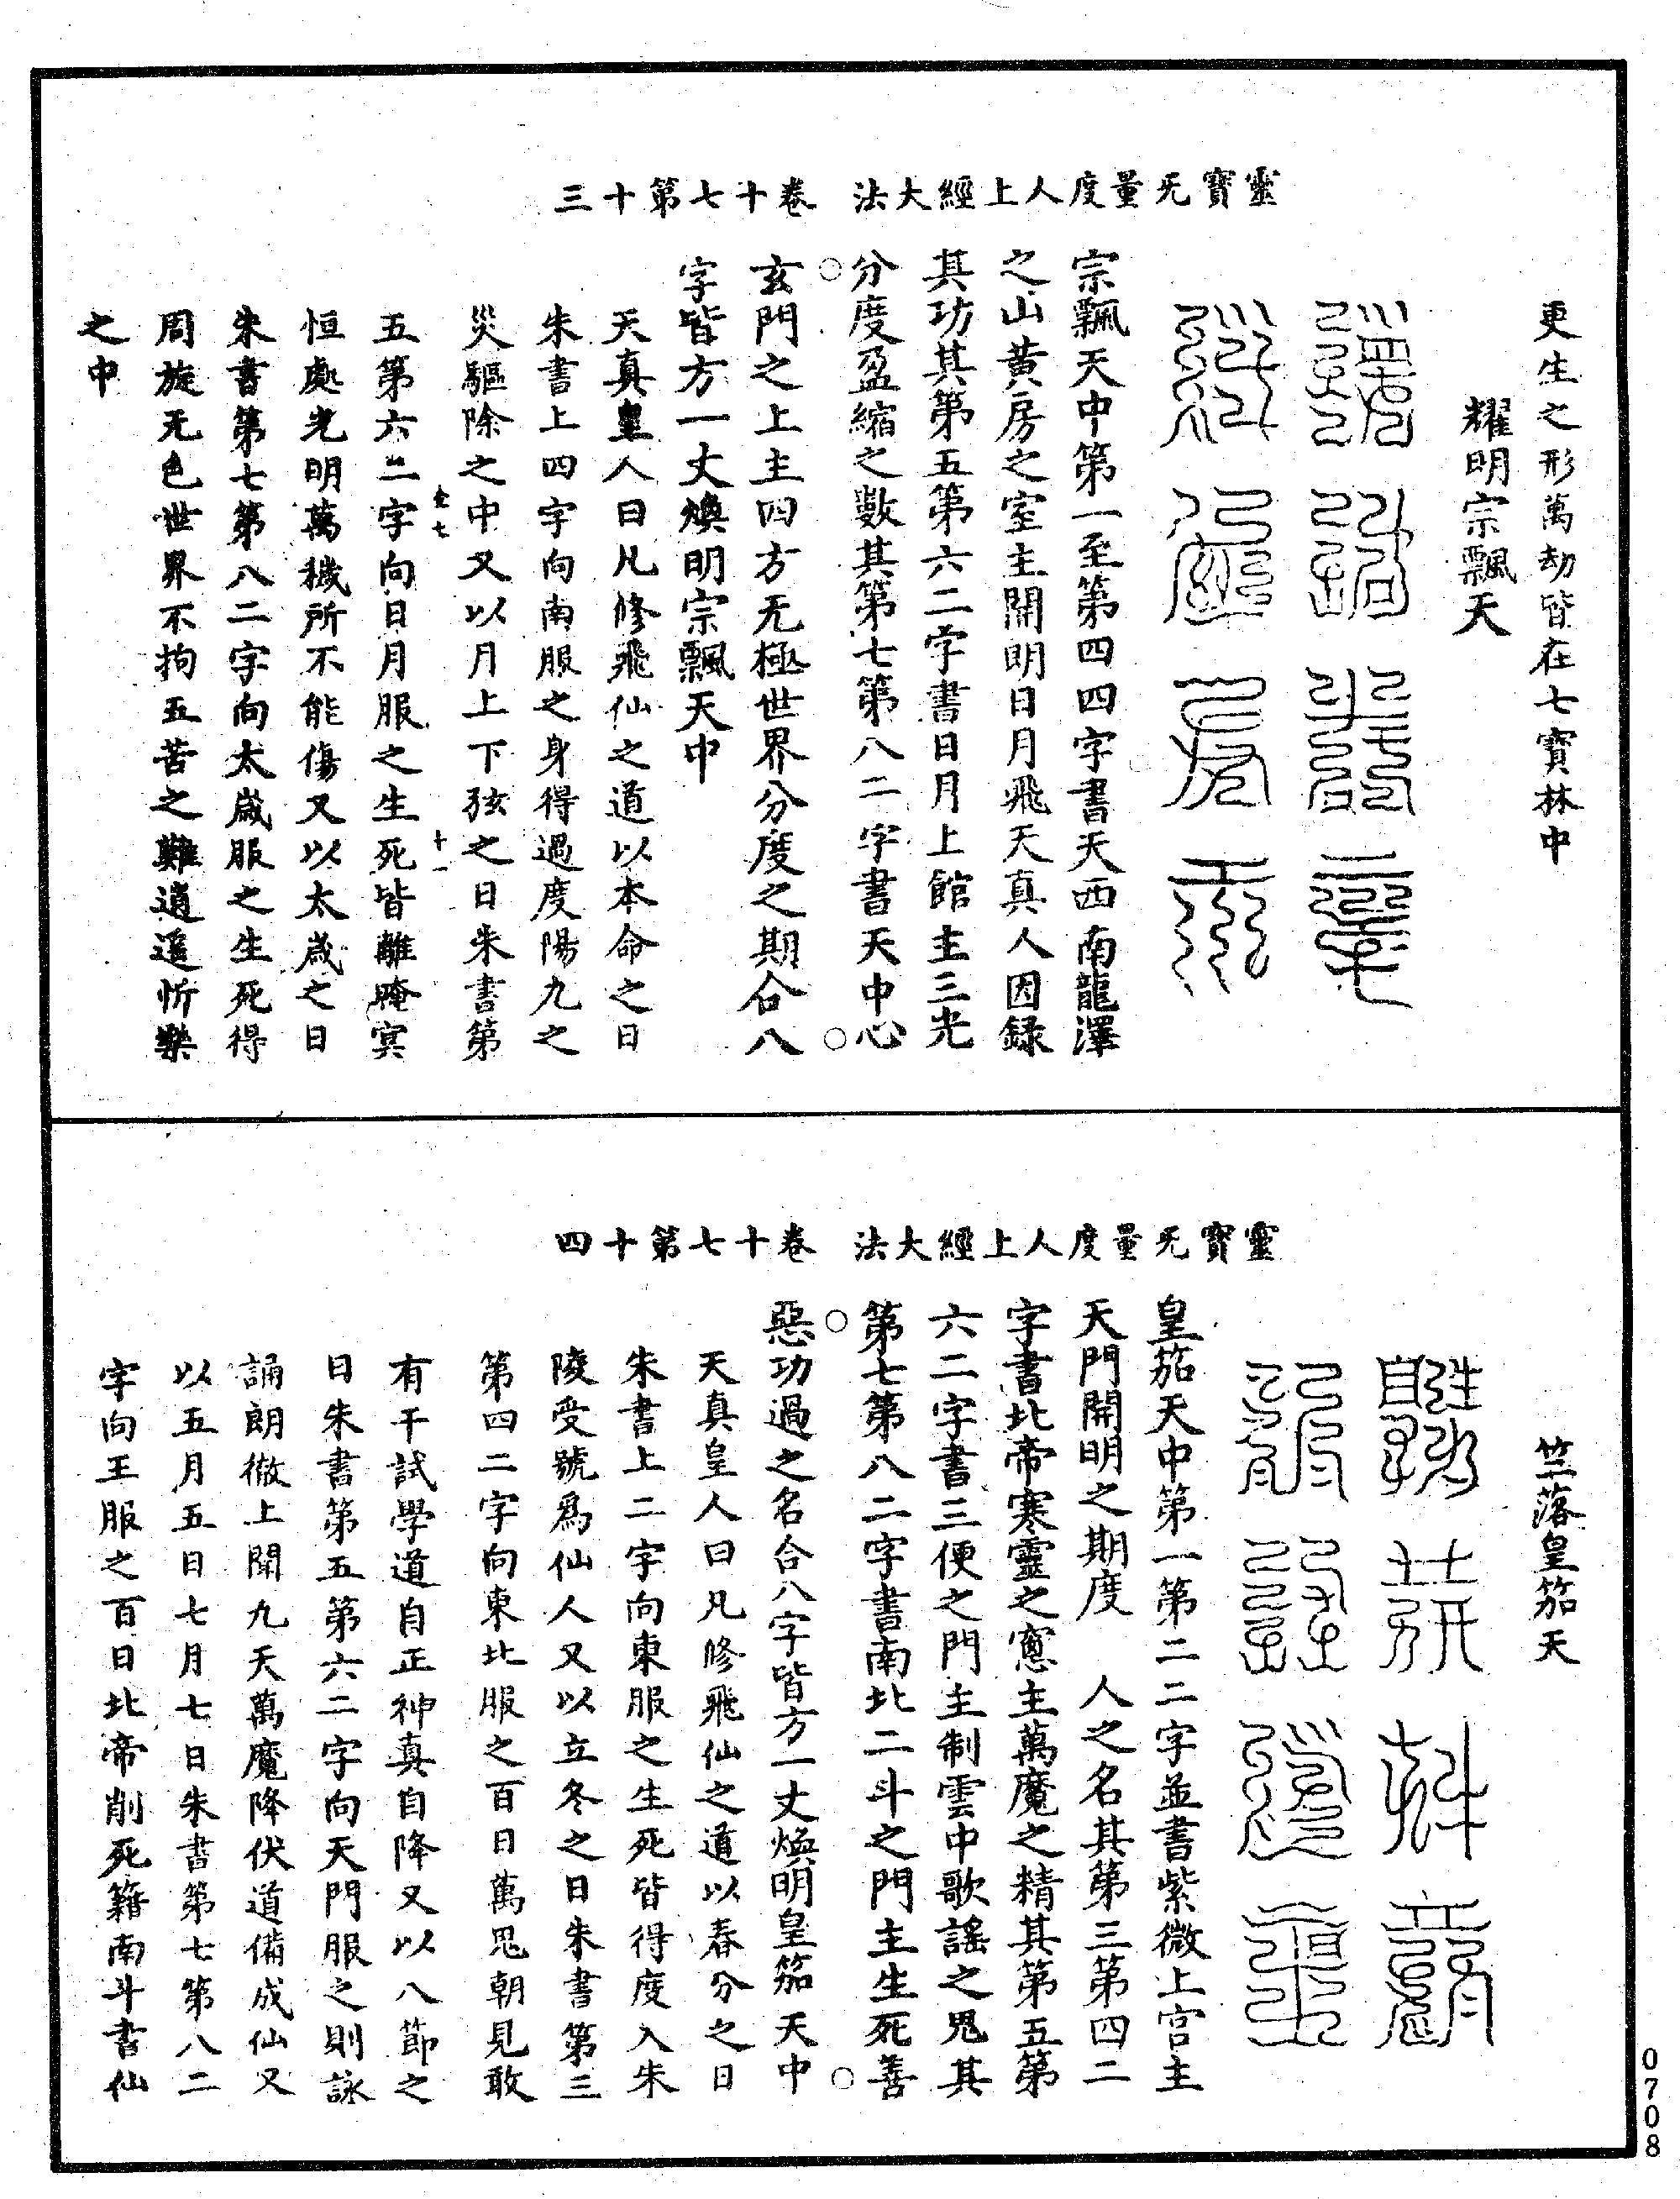 靈寶无量度人上經大法　卷十七第十三
更生之形萬劫皆在七寶林中
耀明宗飄天
宗飄天中第一至第四四字書天西南龍澤
之山黃房之室主開明日月飛天真人因録
其功其第五第六二字書日月上館主三光
分度盈縮之數其第七第八二字書天中心
玄門之上主四方无極世界分度之期合八
字皆方一丈煥明宗飄天中
天真皇人曰凡修飛仙之道以本命之日
朱書上四字向南服之身得過度陽九之
災驅除之中又以月上下弦之日朱書第
五第六二字向日月服之生死皆離晻冥
恒處光明萬穢所不能傷又以太歲之日
朱書第七第八二字向太歲服之生死得
周旋无色世界不拘五苦之難逍遥忻樂
之中
靈寶无量度人上經大法　卷十七第十四
竺落皇笳天
皇笳天中第一第二二字並書紫微上宮主
天門開明之期度　人之名其第三第四二
字書北帝寒靈之窻主萬魔之精其第五第
六二字書三便之門主制雲中歌謠之鬼其
第七第八二字書南北二斗之門主生死善
惡功過之名合八字皆方一丈煥明皇笳天中
天真皇人曰凡修飛仙之道以春分之日
朱書上二字向東服之生死皆得度入朱
陵受號爲仙人又以立冬之日朱書第三
第四二字向東北服之百日萬鬼朝見敢
有干試學道自正神真自降又以八節之
日朱書第五第六二字向天門服之則詠
誦朗徹上聞九天萬魔降伏道備成仙又
以五月五日七月七日朱書第七第八二
字向王服之百日北帝削死籍南斗書仙
0708